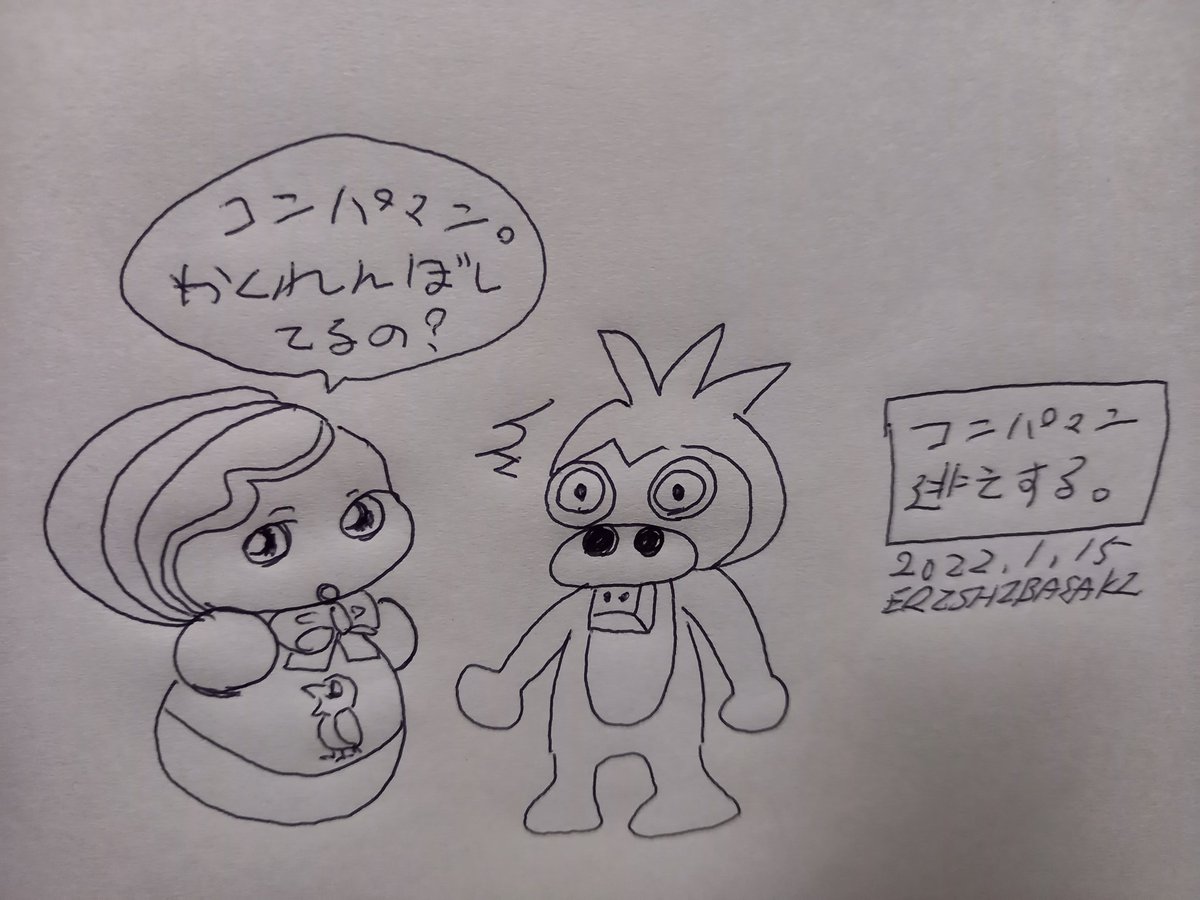 コンパマン。
かくれんぼし
てるの?
コンパマン
する。
2022.1.15